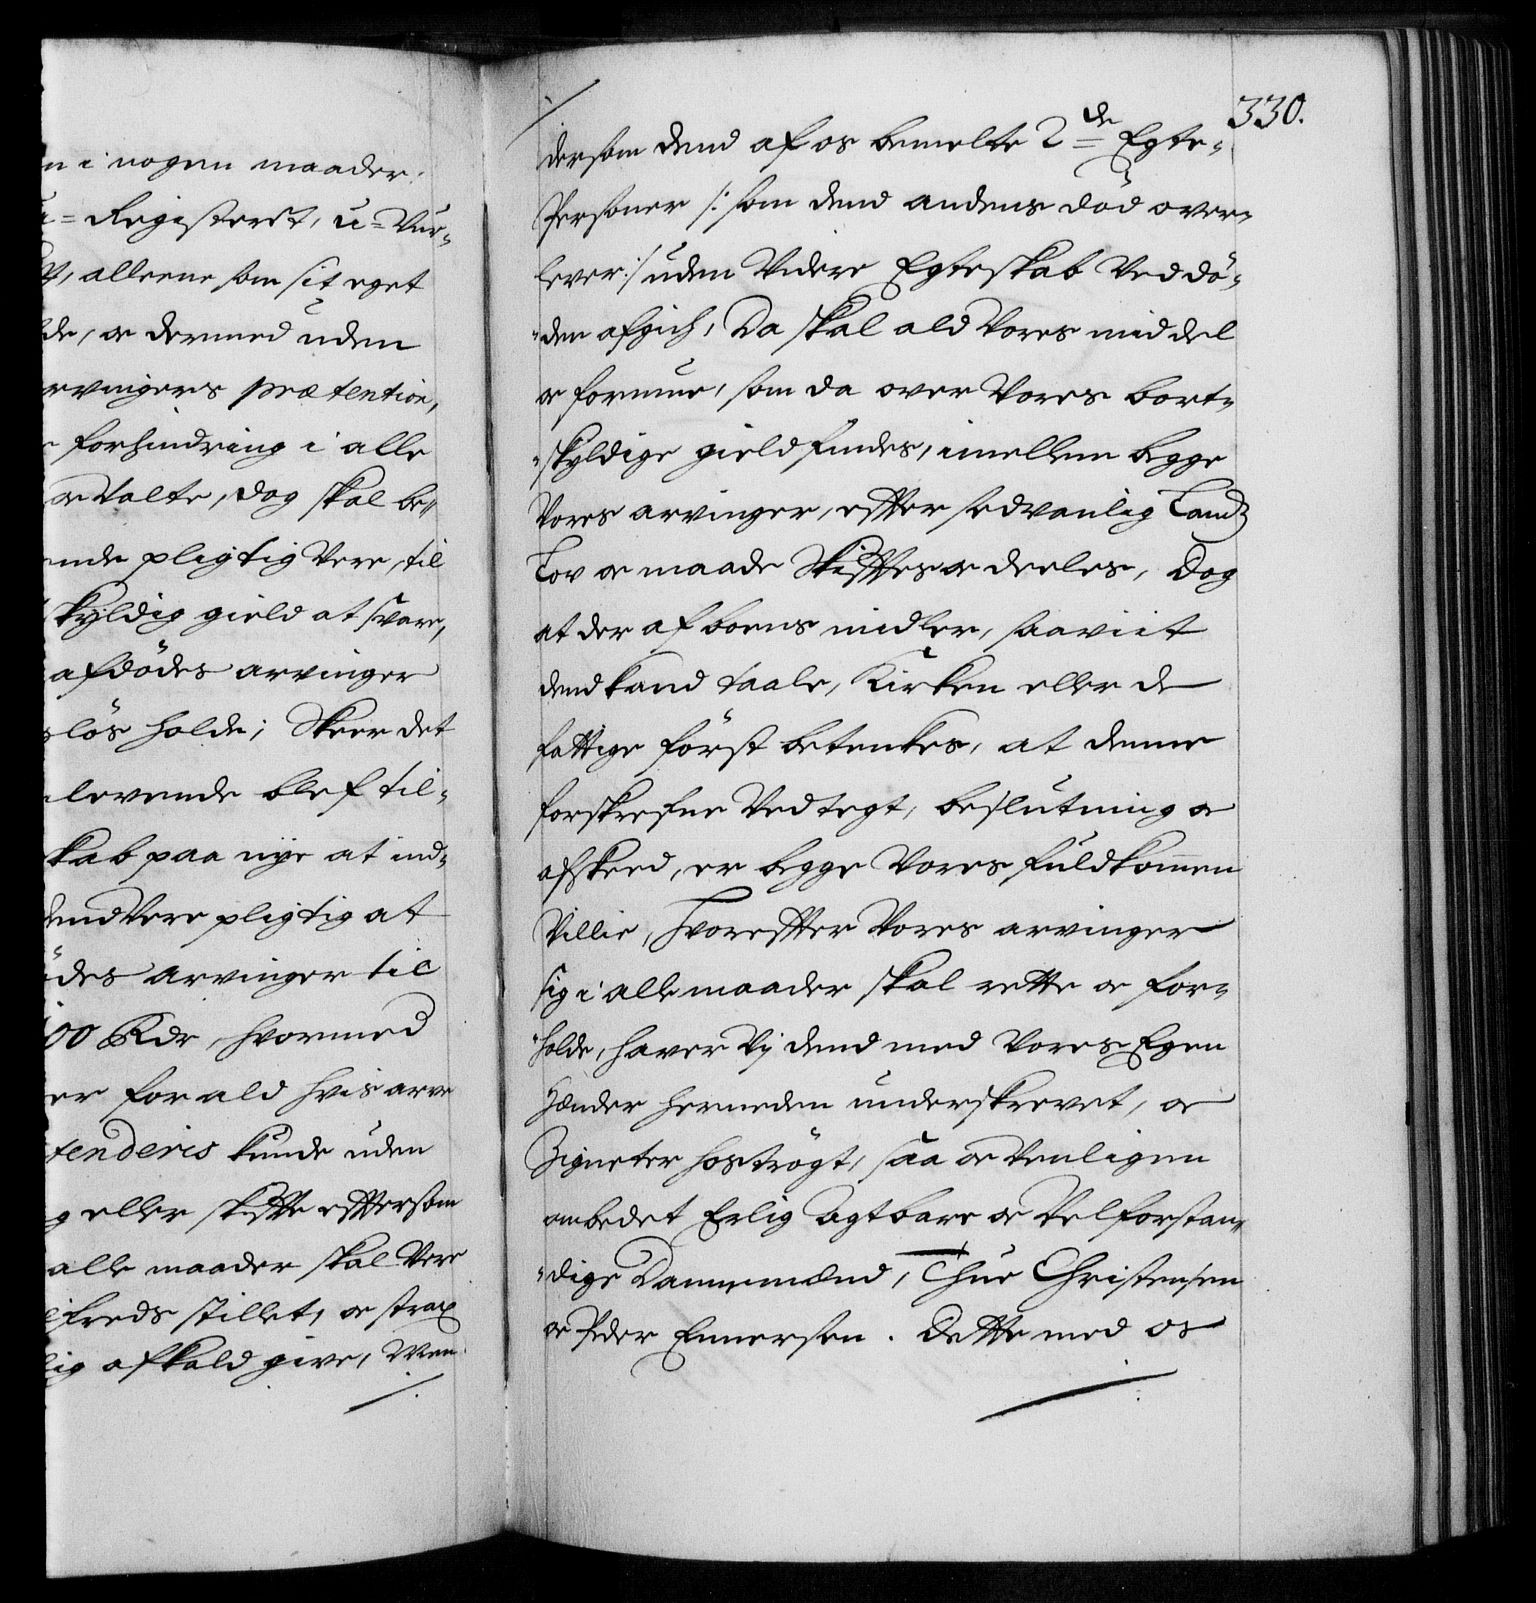 n i nogen maader.
u- Registeret, u-Vur-
alleene som sit eget
de, oc dermed uden
rvingers prætention,
forhindring i alle
oc Valte, dog skal be-
ende pligtig Vere, til
skyldig gield at svare,
afdödes arvinger
slös holde; Skeer det
levende blef til-
skab paa nye at ind-
dend Vere pligtig at
ödes arvinger til
00 Rdr, hvormed
er for ald hvis arve
tenderis kunde uden
g eller skiffte effter som
alle maader skal Vere
lfreds stillet, oc strax
lig afkald give, Men
330.
dersom dend af os bemelte 2de Egte-
Personer /: som dend andens död over-
lever :/ uden Videre Egteskab Ved dö-
den afgich, Da skal ald Vores middel
oc formue, som da over Vores bort-
skyldige gield findes, imellem begge
Vores arvinger, effter sedvanlig Landz
Lov oc maade Skifftes oc deeles, Dog
at der af boens midler, saaviit
dend kand taale, Kirken eller de
fattige först betenkes, at denne
forskrefne Vedtegt, beslutning oc
afskeed, er begge Vores fuldkommen
Villie, hvoreffter Vores arvinger
sig i alle maader skal rette oc for-
holde, haver Vj dend med Vores Egen
Hænder herneden underskrevet, oc
Zigneter hoströgt, saa oc Venligen
ombedet Erlig Agtbare oc Velforstan-
dige Dannemænd, Thue Christensen
oc Peder Ennersen. Dette med os